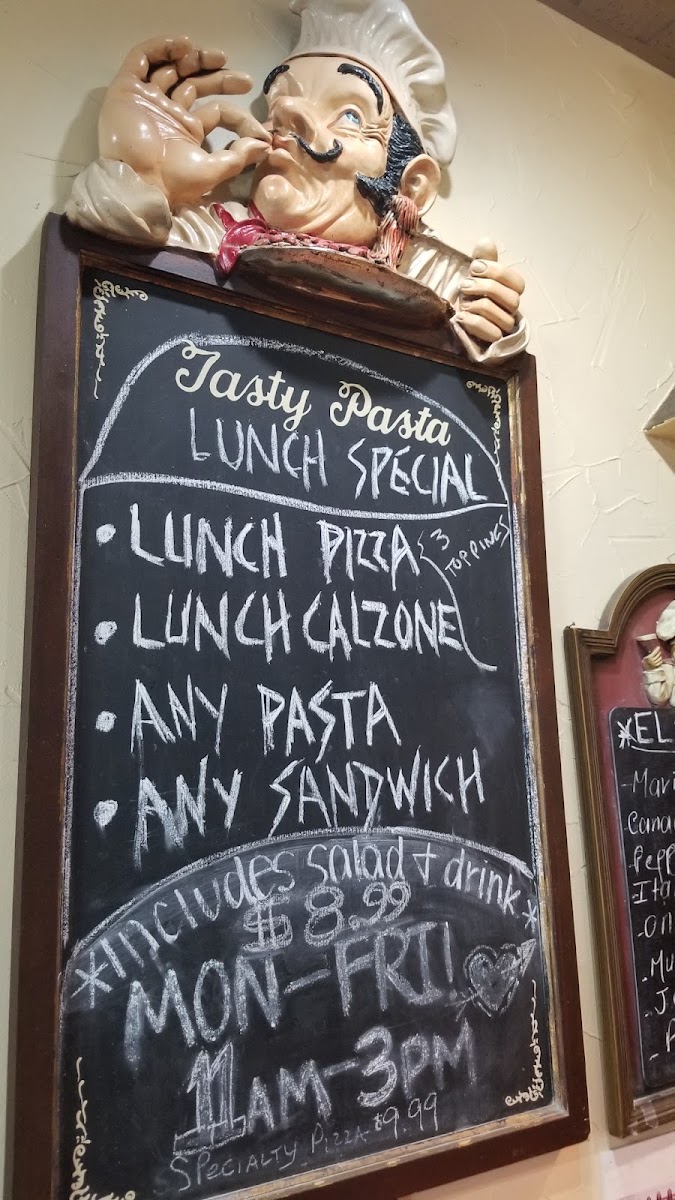 Tasty Pasta
LUNCH SPÉCIAL
• LUNCH PIZZA { 3 TOPPINGS
• LUNCH CALZONE
• ANY PASTA
• ANY SANDWICH
*INCLUDES salad + drink*
$8.99
MON-FRI!
11AM-3PM
SPECIALTY PIZZA $9.99
*EL
- Mari
- Cana
- Pepp
- Ita
- On
- Mu